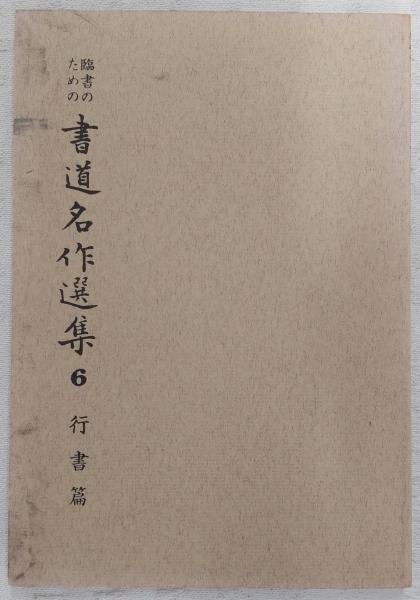 臨書の
ための
書道名作選集6 行書篇